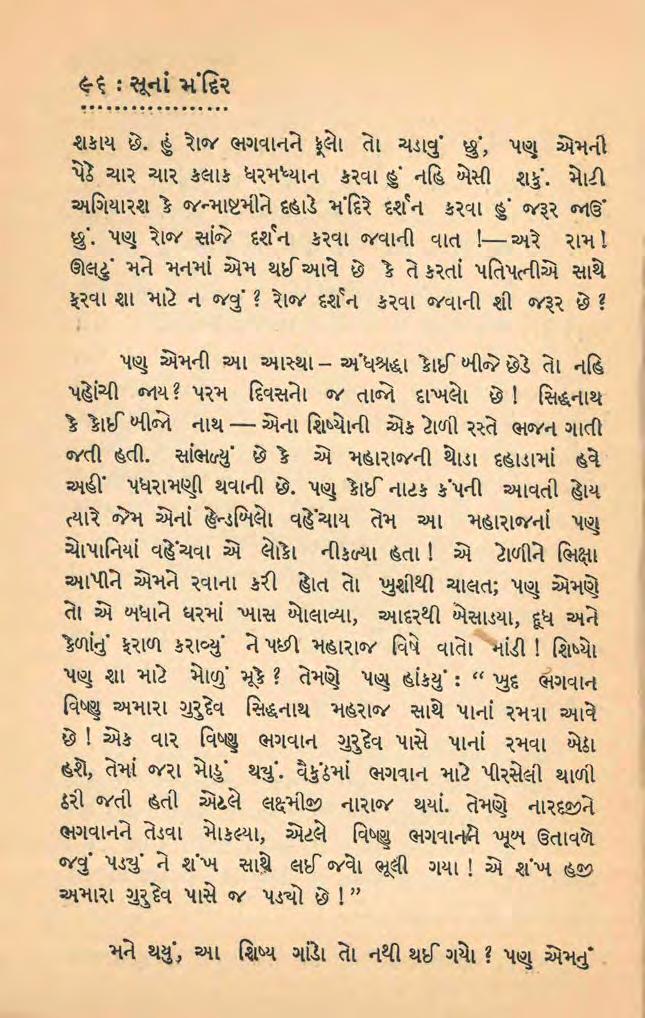 ૯૬ : સૂનાં મંદિર
શકાય છે. હું રોજ ભગવાનને ફૂલો તો ચડાવું છું, પણ એમની
પેઠે ચાર ચાર કલાક ધરમધ્યાન કરવા હું નહિ બેસી શકું. મોટી
અગિયારશ કે જન્માષ્ટમીને દહાડે મંદિરે દર્શન કરવા હું જરૂર જાઉં
છું. પણ રોજ સાંજે દર્શન કરવા જવાની વાત !—અરે રામ !
ઊલટું મને મનમાં એમ થઈ આવે છે કે તે કરતાં પતિપત્નીએ સાથે
ફરવા શા માટે ન જવું ? રોજ દર્શન કરવા જવાની શી જરૂર છે ?
પણ એમની આ આસ્થા – અંધશ્રદ્ધા કોઈ બીજે છેડે તો નહિ
પહોંચી જાય? પરમ દિવસનો જ તાજો દાખલો છે ! સિદ્ધનાથ
કે કોઈ બીજો નાથ — એના શિષ્યોની એક ટોળી રસ્તે ભજન ગાતી
જતી હતી. સાંભળ્યું છે કે એ મહારાજની થોડા દહાડામાં હવે
અહીં પધરામણી થવાની છે. પણ કોઈ નાટક કંપની આવતી હોય
ત્યારે જેમ એનાં હેન્ડબિલો વહેંચાય તેમ આ મહારાજનાં પણ
ચોપાનિયાં વહેંચવા એ લોકો નીકળ્યા હતા ! એ ટોળીને ભિક્ષા
આપીને એમને રવાના કરી હોત તો ખુશીથી ચાલત; પણ એમણે
તો એ બધાને ઘરમાં ખાસ બોલાવ્યા, આદરથી બેસાડયા, દૂધ અને
કેળાંનું ફરાળ કરાવ્યું ને પછી મહારાજ વિષે વાતો માંડી ! શિષ્યો
પણ શા માટે મોળું મૂકે ? તેમણે પણ હાંકયું : “ ખુદ ભગવાન
વિષ્ણુ અમારા ગુરુદેવ સિદ્ધનાથ મહરાજ સાથે પાનાં રમવા આવે
છે ! એક વાર વિષ્ણુ ભગવાન ગુરુદેવ પાસે પાનાં રમવા બેઠા
હશે, તેમાં જરા મોડું થયું. વૈકુંઠમાં ભગવાન માટે પીરસેલી થાળી
ઠરી જતી હતી એટલે લક્ષ્મીજી નારાજ થયાં. તેમણે નારદજીને
ભગવાનને તેડવા મોકલ્યા, એટલે વિષ્ણુ ભગવાનને ખૂબ ઉતાવળે
જવું પડયું ને શંખ સાથે લઈ જવો ભૂલી ગયા ! એ શંખ હજી
અમારા ગુરુદેવ પાસે જ પડયો છે ! ”
મને થયું, આ શિષ્ય ગાંડો તો નથી થઈ ગયો ? પણ એમનું